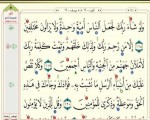 وَلَوْ شَآءَ رَبُّكَ لَجَعَلَ ٱلنَّاسَ أُمَّةً وَٰحِدَةً وَلَا يَزَالُونَ مُخْتَلِفِينَ
إِلَّا مَن رَّحِمَ رَبُّكَ وَلِذَٰلِكَ خَلَقَهُمْ وَتَمَّتْ كَلِمَةُ رَبِّكَ
لَأَمْلَأَنَّ جَهَنَّمَ مِنَ ٱلْجِنَّةِ وَٱلنَّاسِ أَجْمَعِينَ وَكُلًّا نَّقُصُّ
عَلَيْكَ مِنْ أَنۢبَآءِ ٱلرُّسُلِ مَا نُثَبِّتُ بِهِۦ فُؤَادَكَ وَجَآءَكَ فِى هَٰذِهِ
ٱلْحَقُّ وَمَوْعِظَةٌ وَذِكْرَىٰ لِلْمُؤْمِنِينَ وَقُل لِّلَّذِينَ لَا يُؤْمِنُونَ